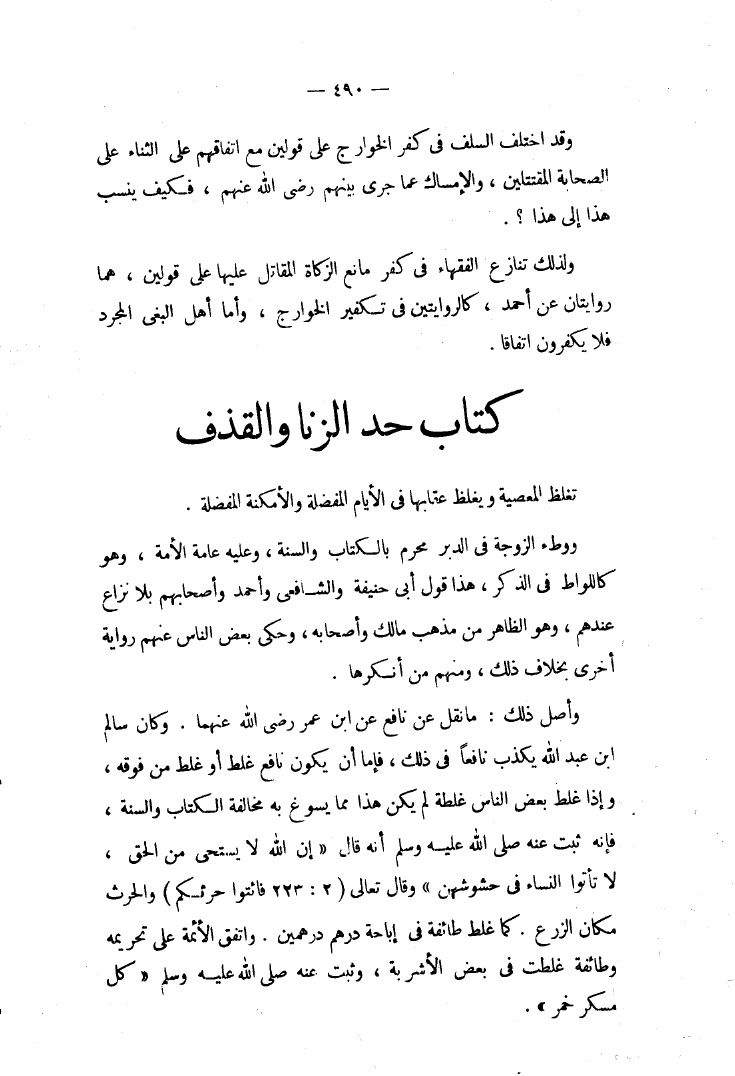 — ٤٩٠ —
وقد اختلف السلف فى كفر الخوارج على قولين مع اتفاقهم على الثناء على
الصحابة المقتتلين ، والإمساك عما جرى بينهم رضى الله عنهم ، فكيف ينسب
هذا إلى هذا ؟ .
ولذلك تنازع الفقهاء فى كفر مانع الزكاة المقاتل عليها على قولين ، هما
روايتان عن أحمد ، كالروايتين فى تكفير الخوارج ، وأما أهل البغى المجرد
فلا يكفرون اتفاقا .
كتاب حد الزنا والقذف
تغلظ المعصية ويغلظ عقابها فى الأيام المفضلة والأمكنة المفضلة .
ووطء الزوجة فى الدبر محرم بالكتاب والسنة ، وعليه عامة الأمة ، وهو
كاللواط فى الذكر ، هذا قول أبى حنيفة والشافعى وأحمد وأصحابهم بلا نزاع
عندهم ، وهو الظاهر من مذهب مالك وأصحابه ، وحكى بعض الناس عنهم رواية
أخرى بخلاف ذلك ، ومنهم من أنكرها .
وأصل ذلك : مانقل عن نافع عن ابن عمر رضى الله عنهما . وكان سالم
ابن عبد الله يكذب نافعاً فى ذلك ، فإما أن يكون نافع غلط أو غلط من فوقه ،
وإذا غلط بعض الناس غلطة لم يكن هذا مما يسوغ به مخالفة الكتاب والسنة ،
فإنه ثبت عنه صلى الله عليه وسلم أنه قال « إن الله لا يستحى من الحق ،
لا تأتوا النساء فى حشوشهن » وقال تعالى ( ٢ : ٢٢٣ فائتوا حرثكم ) والحرث
مكان الزرع . كما غلط طائفة فى إباحة درهم درهمين . واتفق الأئمة على تحريمه
وطائفة غلطت فى بعض الأشربة ، وثبت عنه صلى الله عليه وسلم « كل
مسكر خمر » .